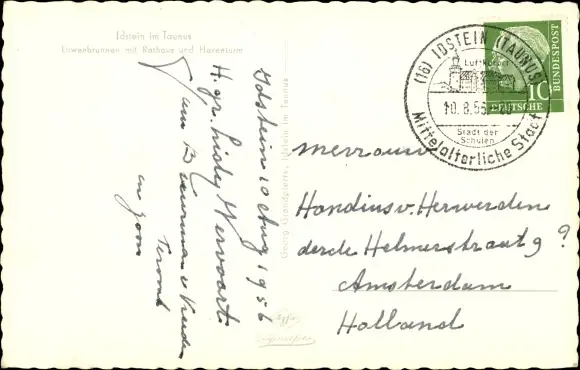 Idstein im Taunus
Löwenbrunnen mit Rathaus und Hexenturm
Idstein 10 Aug 1956
H. gr. Liesby Wervoort
van
en zoon
Georg Grandpierre, Idstein im Taunus
(16) IDSTEIN (TAUNUS)
Luftkurort
10.8.56
Stadt der
Schulen
Mittelalterliche Stadt
10
DEUTSCHE
BUNDESPOST
Mevrouw
Hondius v. Herwerden
derde Helmerstraat 9 ?
Amsterdam
Holland